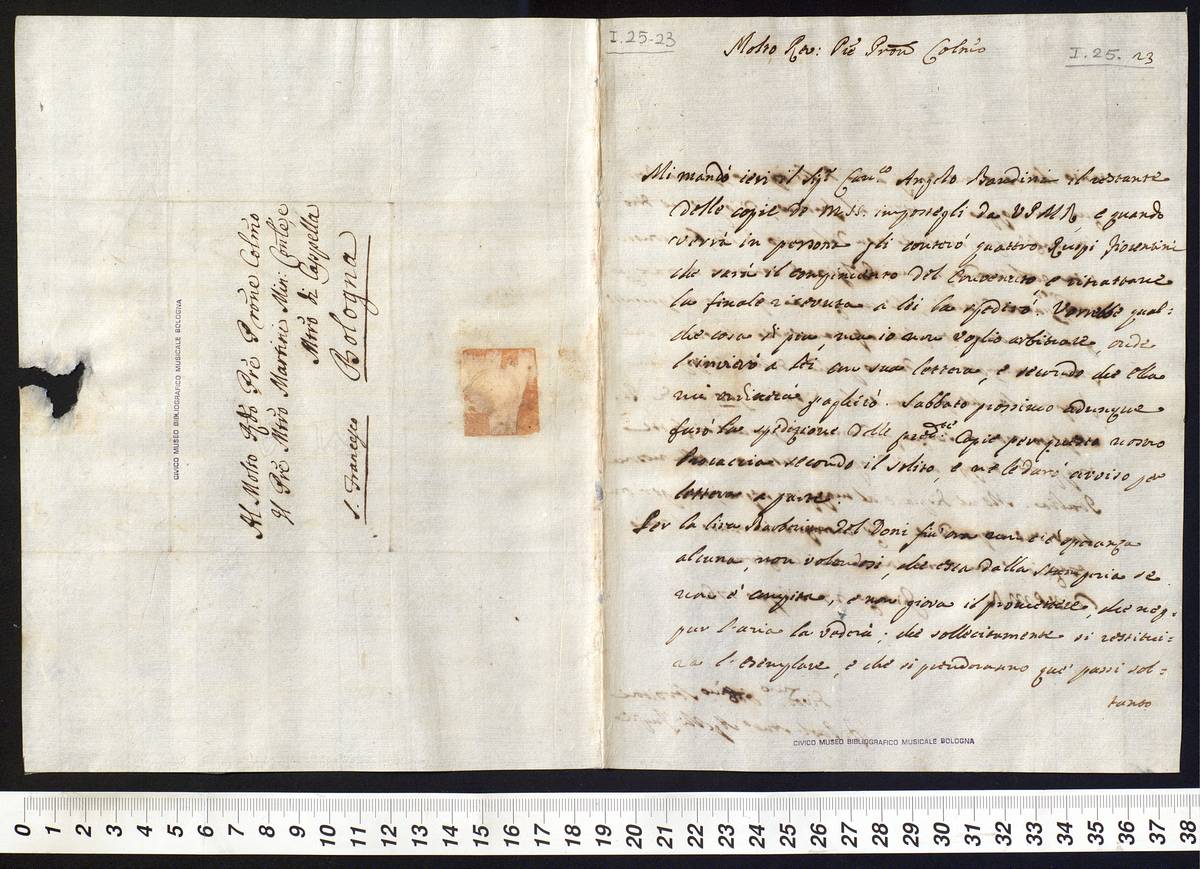 I.25-23
Molto Rev: Pre Prōn Colmō
I.25. 23
Mi mandò ieri il Sigr Can.co Angelo Bandini il restante
delle copie di M.SS. impostegli da V.P.M.R. e quando
verrà in persona gli conterò quattro Ruspi fiorentini
che sarà il compimento del convenuto e ritrattane
la finale ricevuta a lei la spedirò. Vorrebbe qual-
che cosa di più, ma io non voglio arbitrare, onde
l'invierò a lei con sua lettera, e secondo che ella
mi ordinerà pagherò. Sabbato prossimo adunque
farò la spedizione delle predte Copie per questo nostro
Procaccia secondo il solito, e ne le darò avviso per
lettera a parte.
Per la lira Barberina del Doni fin'ora non v'è speranza
alcuna, non volendosi, che esca dalla Stamperia se
non è compita, e non giova il promettere, che nep-
pur l'aria la vedrà; che sollecitamente si restitui-
rà l'esemplare, e che si prenderanno que' passi sol-
tanto
CIVICO MUSEO BIBLIOGRAFICO MUSICALE BOLOGNA
Al Molto Rdo Pre Prone Colmō
Il Pre Mro Martini Min: Conle
Mro di Cappella
Bologna
S. Francesco
CIVICO MUSEO BIBLIOGRAFICO MUSICALE BOLOGNA
0 1 2 3 4 5 6 7 8 9 10 11 12 13 14 15 16 17 18 19 20 21 22 23 24 25 26 27 28 29 30 31 32 33 34 35 36 37 38